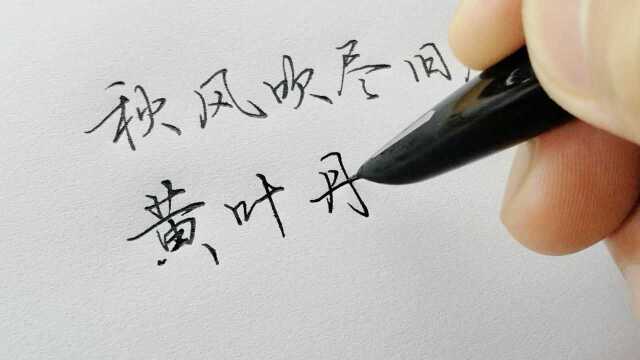 秋风吹尽旧
黄叶丹